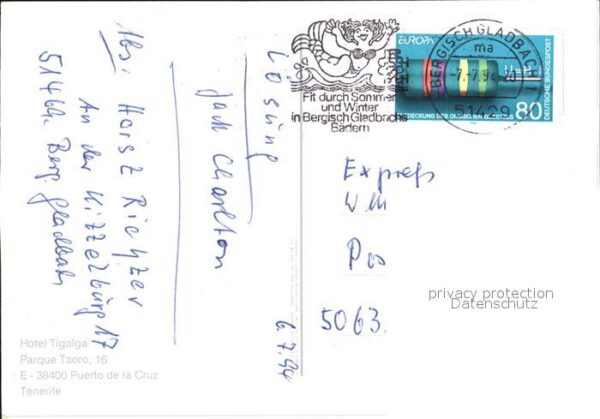 Abs: Horst Richter
An der Kittelburg 17
51469 Berg. Gladbach
Lösung
Jack Charlton
6.7.94
Hotel Tigaiga
Parque Taoro, 16
E - 38400 Puerto de la Cruz
Tenerife
Fit durch Sommer
und Winter
in Bergisch Gladbachs
Bädern
BERGISCH GLADBACH 1
ma
-7.-7.94
EUROPA
DEUTSCHE BUNDESPOST
80
Express
5063
privacy protection
Datenschutz